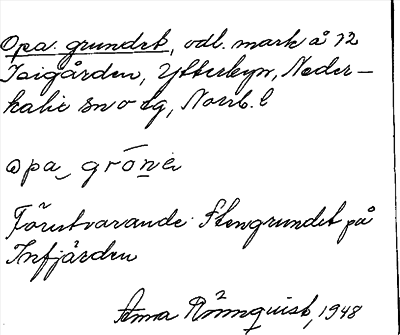 Opa. grundet, odl. mark å 12
Isigården, Ytterbyn, Neder-
kalix sn o lg, Norrb. l
opa gróne
Förutvarande Stengrundet på
Infjärden
Anna Rönnquist, 1948